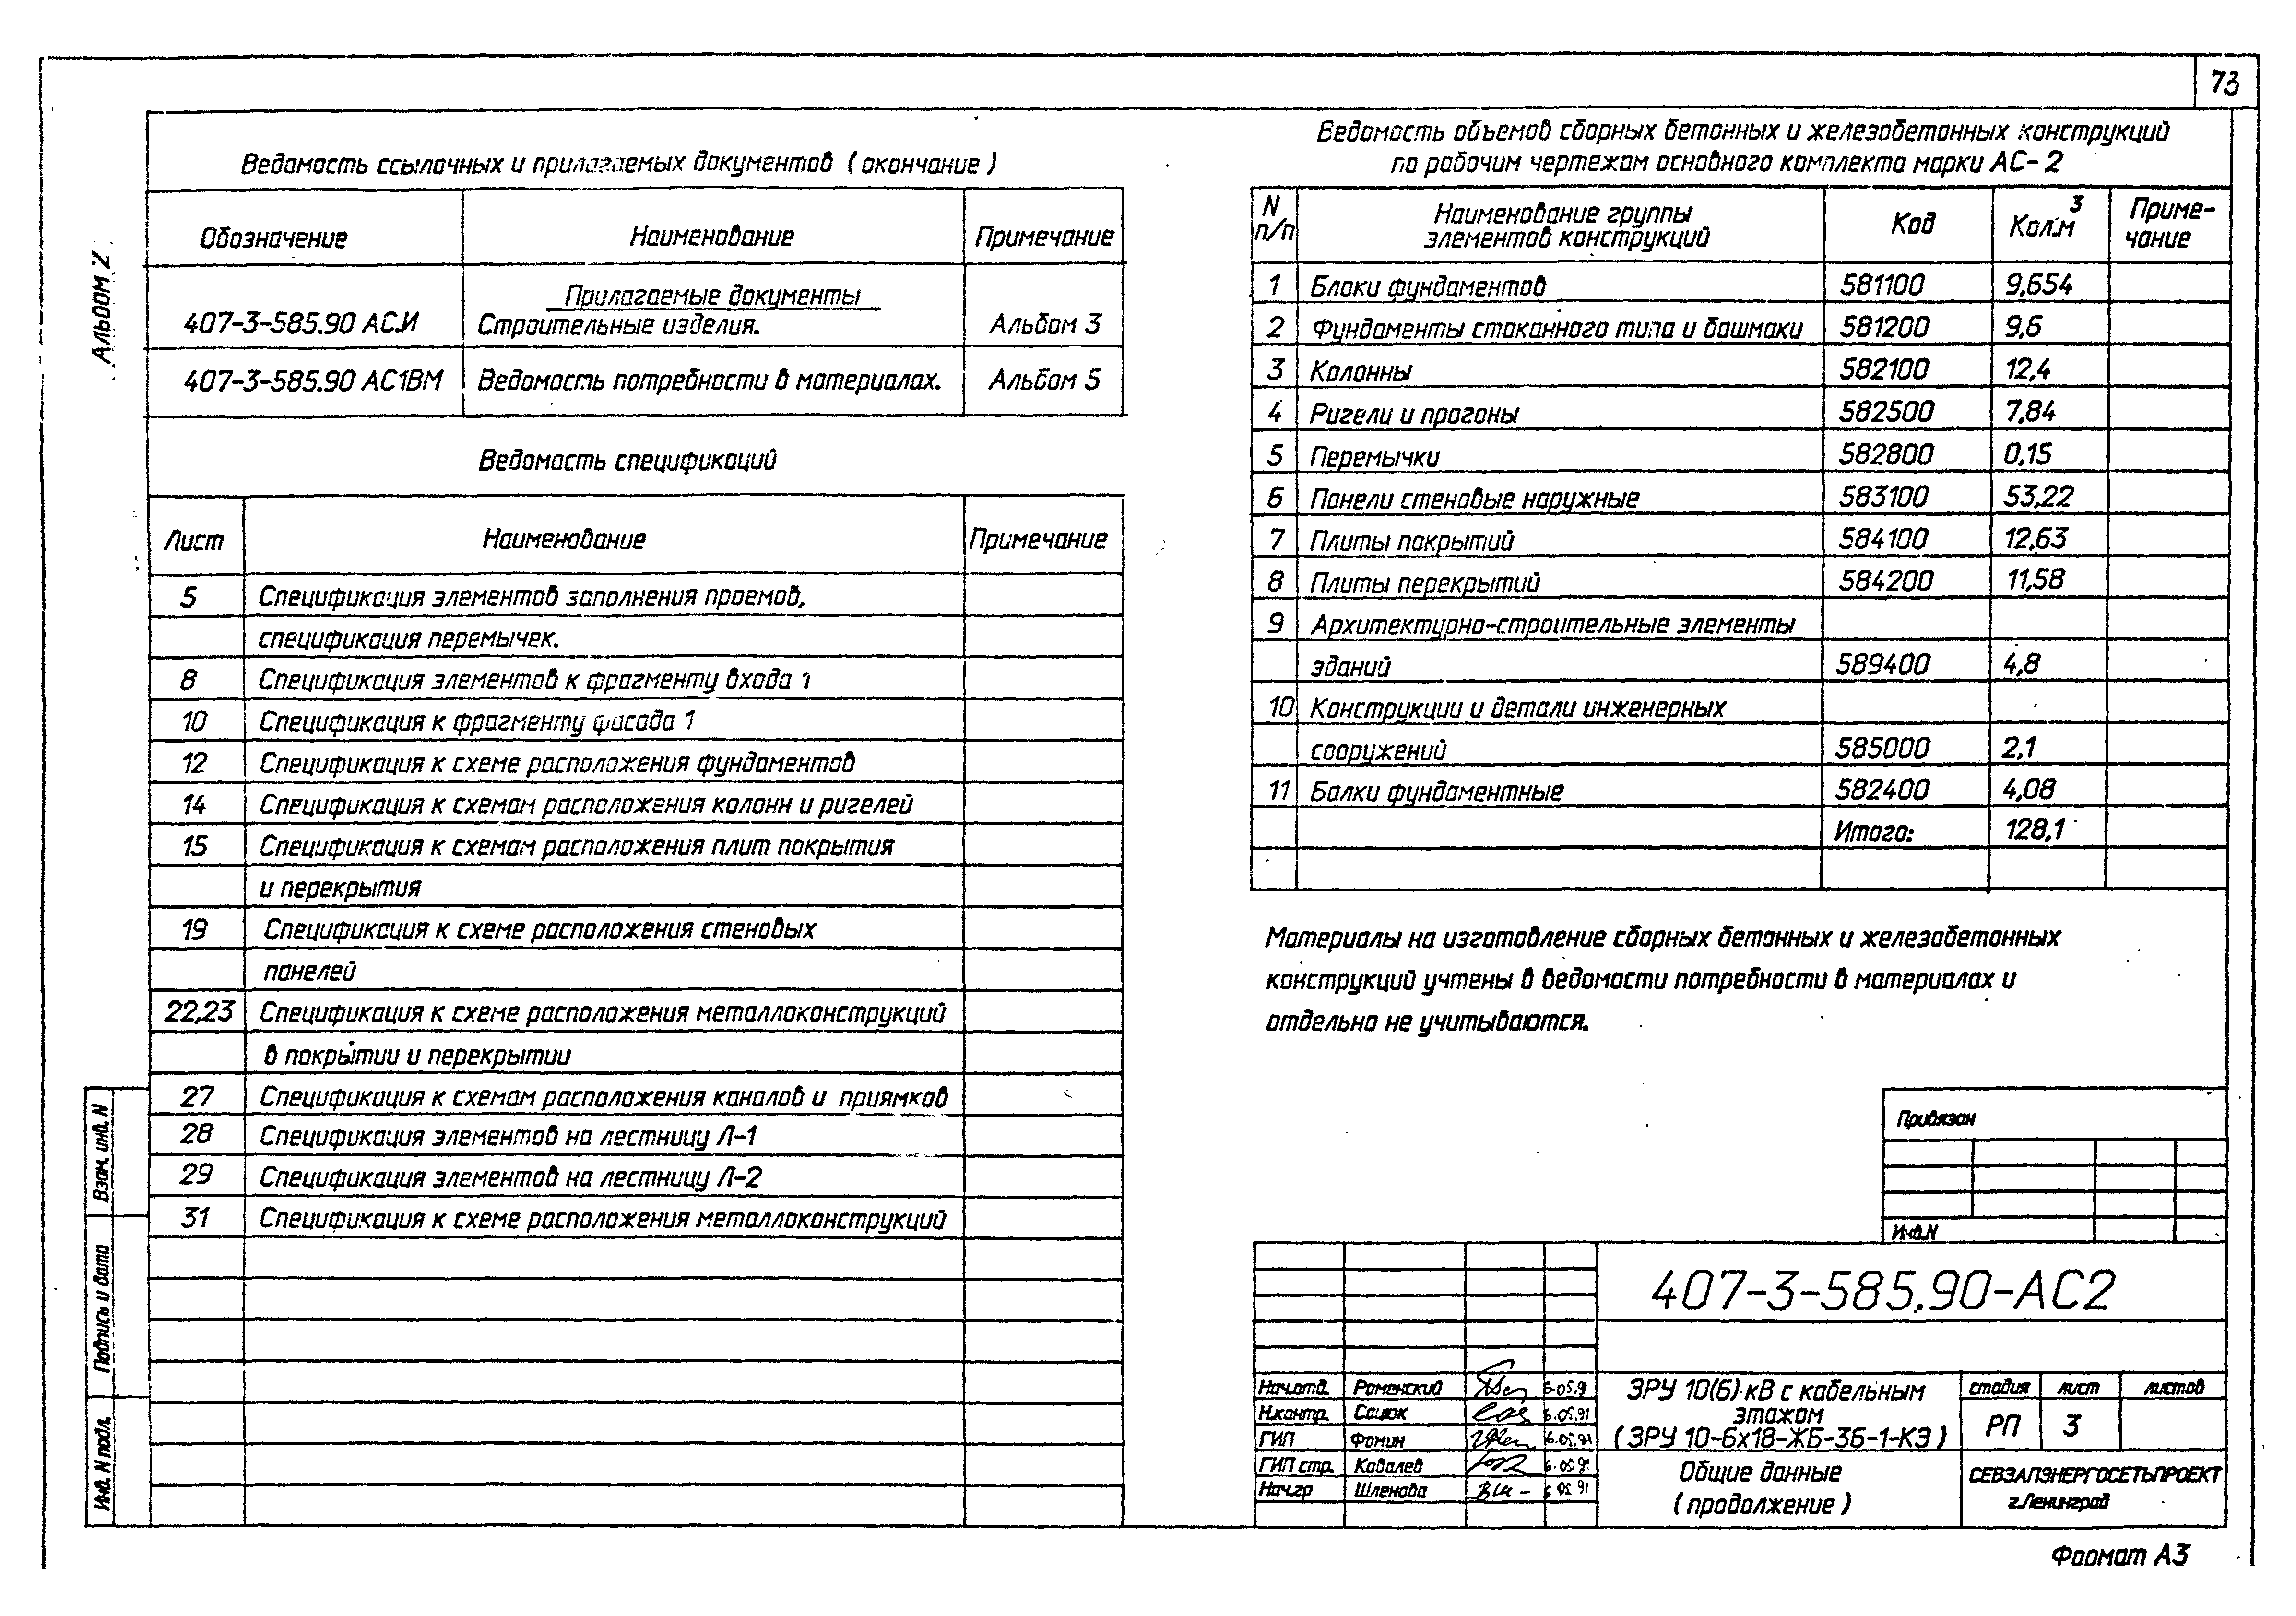 73
Альбом 2
Ведомость ссылочных и прилагаемых документов (окончание)
Обозначение Наименование Примечание
Прилагаемые документы
407-3-585.90 АС.И Строительные изделия. Альбом 3
407-3-585.90 АС1ВМ Ведомость потребности в материалах. Альбом 5
Ведомость спецификаций
Лист Наименование Примечание
5 Спецификация элементов заполнения проемов,
спецификация перемычек.
8 Спецификация элементов к фрагменту входа 1
10 Спецификация к фрагменту фасада 1
12 Спецификация к схеме расположения фундаментов
14 Спецификация к схемам расположения колонн и ригелей
15 Спецификация к схемам расположения плит покрытия
и перекрытия
19 Спецификация к схеме расположения стеновых
панелей
22,23 Спецификация к схеме расположения металлоконструкций
в покрытии и перекрытии
27 Спецификация к схемам расположения каналов и приямков
28 Спецификация элементов на лестницу Л-1
29 Спецификация элементов на лестницу Л-2
31 Спецификация к схеме расположения металлоконструкций
Взам. инв. N
Подпись и дата
Инв. N подл.
Ведомость объемов сборных бетонных и железобетонных конструкций
по рабочим чертежам основного комплекта марки АС-2
N п/п Наименование группы элементов конструкций Код Кол.м3 Приме-чание
1 Блоки фундаментов 581100 9,654
2 Фундаменты стаканного типа и башмаки 581200 9,6
3 Колонны 582100 12,4
4 Ригели и прогоны 582500 7,84
5 Перемычки 582800 0,15
6 Панели стеновые наружные 583100 53,22
7 Плиты покрытий 584100 12,63
8 Плиты перекрытий 584200 11,58
9 Архитектурно-строительные элементы
зданий 589400 4,8
10 Конструкции и детали инженерных
сооружений 585000 2,1
11 Балки фундаментные 582400 4,08
Итого: 128,1
Материалы на изготовление сборных бетонных и железобетонных
конструкций учтены в ведомости потребности в материалах и
отдельно не учитываются.
Привязан
Инв.N
407-3-585.90-АС2
Нач.отд. Роменский 6.05.9
Н.контр. Сацюк 6.05.91
ГИП Фомин 6.05.91
ГИП стр. Ковалев 6.05.91
Нач.гр Шленова 6 05 91
ЗРУ 10(6) кВ с кабельным
этажом
(ЗРУ 10-6х18-ЖБ-36-1-КЭ)
стадия лист листов
РП 3
Общие данные
(продолжение)
СЕВЗАПЭНЕРГОСЕТЬПРОЕКТ
г.Ленинград
Формат А3